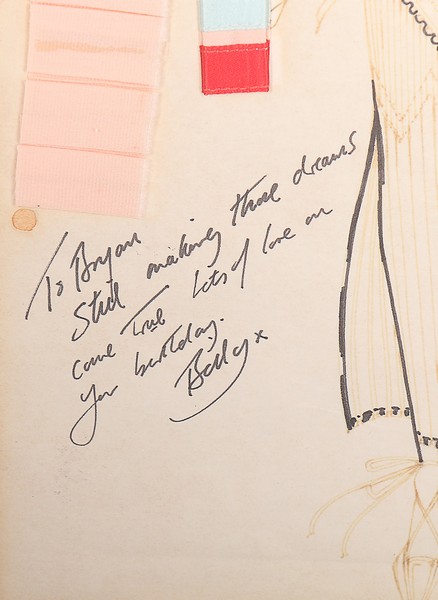 To Bryan
Still making those dreams
come true lots of love on
your birthday.
Billy x